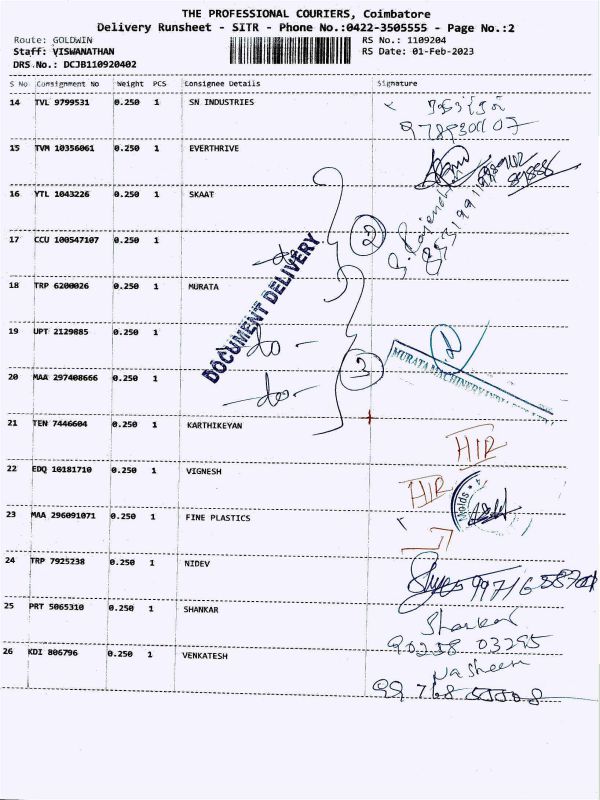 THE PROFESSIONAL COURIERS, Coimbatore
Delivery Runsheet - SITR - Phone No.:0422-3505555 - Page No.:2
Route: GOLDWIN RS No.: 1109204
Staff: VISWANATHAN RS Date: 01-Feb-2023
DRS No.: DCJB110920402
S No Consignment No Weight PCS Consignee Details Signature
14 TVL 9799531 0.250 1 SN INDUSTRIES
15 TVM 10356061 0.250 1 EVERTHRIVE
16 YTL 1043226 0.250 1 SKAAT
17 CCU 100547107 0.250 1 do 2
18 TRP 6200026 0.250 1 MURATA
DOCUMENT DELIVERY
19 UPT 2129885 0.250 1 do
20 MAA 297408666 0.250 1 do 3
MURATA MACHINERY INDIA
21 TEN 7446604 0.250 1 KARTHIKEYAN
HIR
22 EDQ 10181710 0.250 1 VIGNESH
HIR
Molds
23 MAA 296091071 0.250 1 FINE PLASTICS
24 TRP 7925238 0.250 1 NIDEV
25 PRT 5065310 0.250 1 SHANKAR
Sharkar
90258 03295
26 KDI 806796 0.250 1 VENKATESH
Nasheer